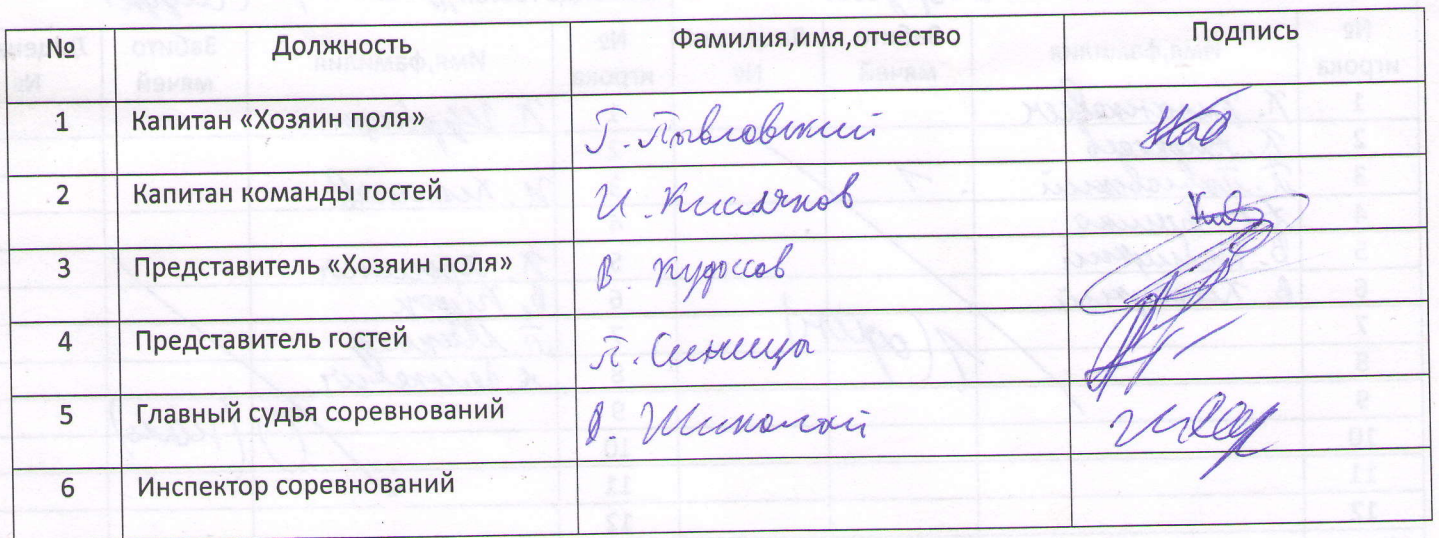 № Должность Фамилия,имя,отчество Подпись
1 Капитан «Хозяин поля» Г.
2 Капитан команды гостей И. Кислячков
3 Представитель «Хозяин поля» В.
4 Представитель гостей П. Синица
5 Главный судья соревнований Шиколай
6 Инспектор соревнований